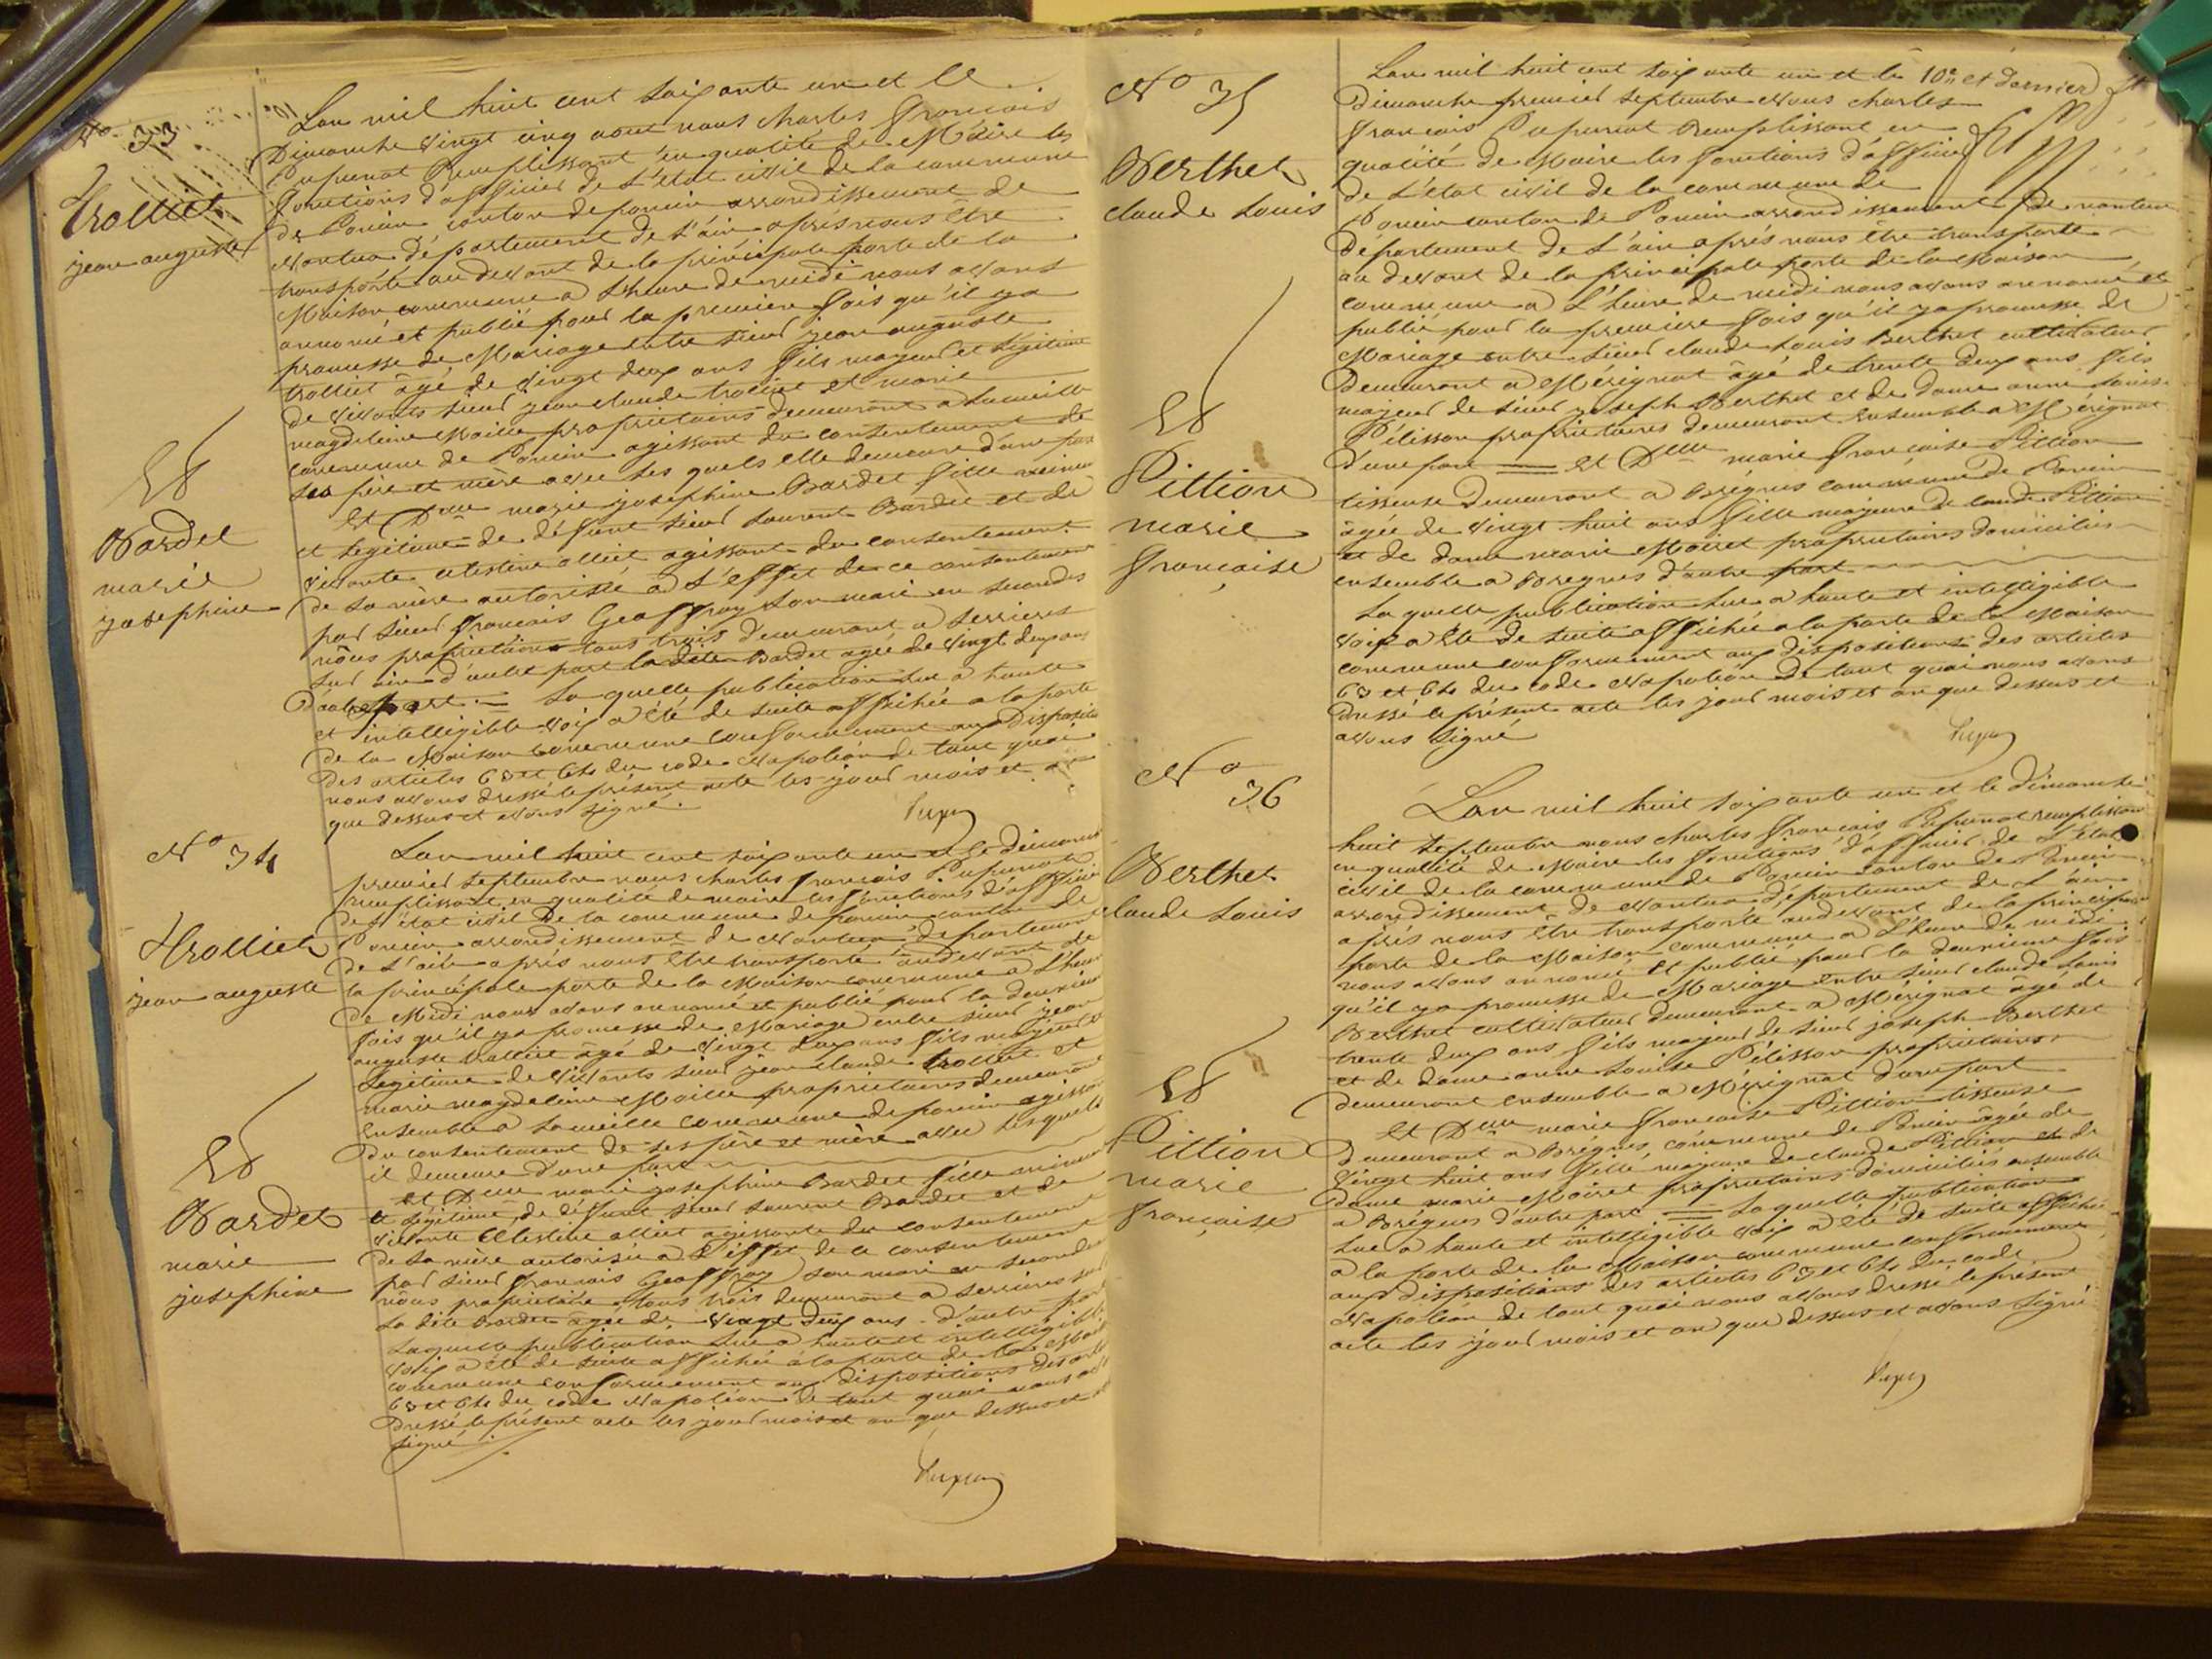 No 33
Trolliet
jean auguste
Et
Bardet
marie
josephine
Lan mil huit cent soixante un et le
Dimanche vingt cinq aout nous charles françois
Pupunat Remplissant en qualité de Maire les
fonctions d'officier de l'état civil de la commune
de Poncin canton de poncin arrondissement de
Nantua département de l'ain après nous être
transporté au devant de la principale porte de la
Maison commune a l'heure de midi nous avons
annoncé et publié pour la premiere fois qu'il ya
promesse de Mariage entre sieur jean auguste
trolliet âgé de vingt deux ans fils majeur et légitime
de vivants sieur jean claude trolliet et marie
magdeleine Maille propriétaires demeurant a
commune de Poncin agissant du consentement de
ses père et mère avec les quels elle demeure d'une part
Et Dlle marie josephine Bardet fille mineure
et legitime de défunt sieur Laurent Bardet et de
vivante celestine alliet agissant du consentement
de sa mère autorisée a l'effet de ce consentement
par sieur françois Geoffray son mari en secondes
nôces propriétaires tous trois demeurant a serrieres
sur ain d'autre part la dite Bardet agée de vingt deux ans
D'autre part. — La quelle publication lue a haute
et intelligible voix a été de suite affichée a la porte
de la Maison commune conformement aux dispositions
des articles 63 et 64 du code Napoléon de tout quoi
nous avons dressé le présent acte les jour mois et an
que dessus et avons signé.
No 34
Trolliet
jean auguste
Et
Bardet
marie
josephine
Lan mil huit cent soixante un et le Dimanche
premier septembre nous charles françois Pupunat
remplissant en qualité de maire les fonctions d'officier
de l'état civil De la commune de poncin canton de
Poncin arrondissement de Nantua département
de l'ain après nous être transporté au devant de
la principale porte de la Maison commune a l'heure
de Midi nous avons annoncé et publié pour la deuxieme
fois qu'il ya promesse de Mariage entre sieur jean
auguste trolliet âgé de vingt deux ans fils majeur et
légitime de vivants sieur jean claude trolliet et
marie magdeleine Maille propriétaires demeurant
ensemble a commune de poncin agissant
du consentement de ses père et mère avec lesquels
il demeure d'une part
et Dlle marie josephine Bardet fille mineure
et légitime de défunt sieur Laurent Bardet et de
vivante Celestine alliet agissante du consentement
de sa mère autorisée a l'effet de ce consentement
par sieur françois Geoffray son mari en secondes
nôces propriétaire tous trois demeurant a serrieres sur
La dite Bardet âgée de vingt deux ans d'autre part
Laquelle publication lue a haute et intelligible
voix a été de suite affichée a la porte de la Maison
commune conformement aux dispositions des articles
63 et 64 du code Napoléon de tout quoi nous avons
Dressé le présent acte les jour mois et an que dessus et
signé
No 35
Berthet
claude Louis
Et
Pittion
marie
françoise
10e et dernier ft
Lan mil huit cent soixante un et le
Dimanche premier septembre Nous charles
françois Pupunat Remplissant en
qualité de Maire les fonctions d'officier
de l'état civil de la commune de
Poncin canton de Poncin arrondissement de nantua
Département de l'ain après nous être transporté
au devant de la principale porte de la Maison
commune a l'heure de midi nous avons annoncé et
publié pour la premiere fois qu'il ya promesse de
Mariage entre sieur claude Louis Berthet cultivateur
Demeurant a Mérignat âgé de trente deux ans fils
majeur de sieur joseph Berthet et de Dame anne Louise
Pélisson propriétaires demeurant ensemble a Mérignat
D'une part — et Dlle marie françoise Pittion
tisseuse Demeurant a Bregnes commune De Poncin
âgée de vingt huit ans fille majeure de Claude Pittion
et de dame marie Moiret propriétaires domiciliés
ensemble a Bregnes d'autre part
La quelle publication lue a haute et intelligible
voix a été de suite affichée a la porte de la Maison
commune conformement aux dispositions des articles
63 et 64 du code Napoléon De tout quoi nous avons
Dressé le présent acte les jour mois et an que dessus et
avons signé
No 36
Berthet
claude Louis
Et
Pittion
marie
françoise
Lan mil huit soixante un et le Dimanche
huit septembre nous charles françois Pupunat remplissant
en qualité de Maire les fonctions d'officier de l'État
civil de la commune de Poncin canton de Poncin
arrondissement de Nantua département de l'ain
après nous être transporté au devant de la principale
porte de la Maison commune a l'heure de midi
nous avons annoncé et publié pour la deuxieme fois
qu'il ya promesse de Mariage entre sieur claude Louis
Berthet cultivateur demeurant a Mérignat âgé de
trente deux ans fils majeur de sieur joseph Berthet
et de dame anne Louise Pélisson propriétaires
demeurant ensemble a Mérignat d'une part
Et Dlle marie françoise Pittion tisseuse
Demeurant a Brégnes commune de Poncin âgée de
vingt huit ans fille majeure de claude Pittion et de
dame marie Moiret propriétaires domiciliés ensemble
a Brégnes d'autre part — La quelle publication
Lue a haute et intelligible voix a été de suite affichée
a la porte de la Maison commune conformement
aux dispositions des articles 63 et 64 du code
Napoléon de tout quoi nous avons dressé le présent
acte les jour mois et an que dessus et avons signé